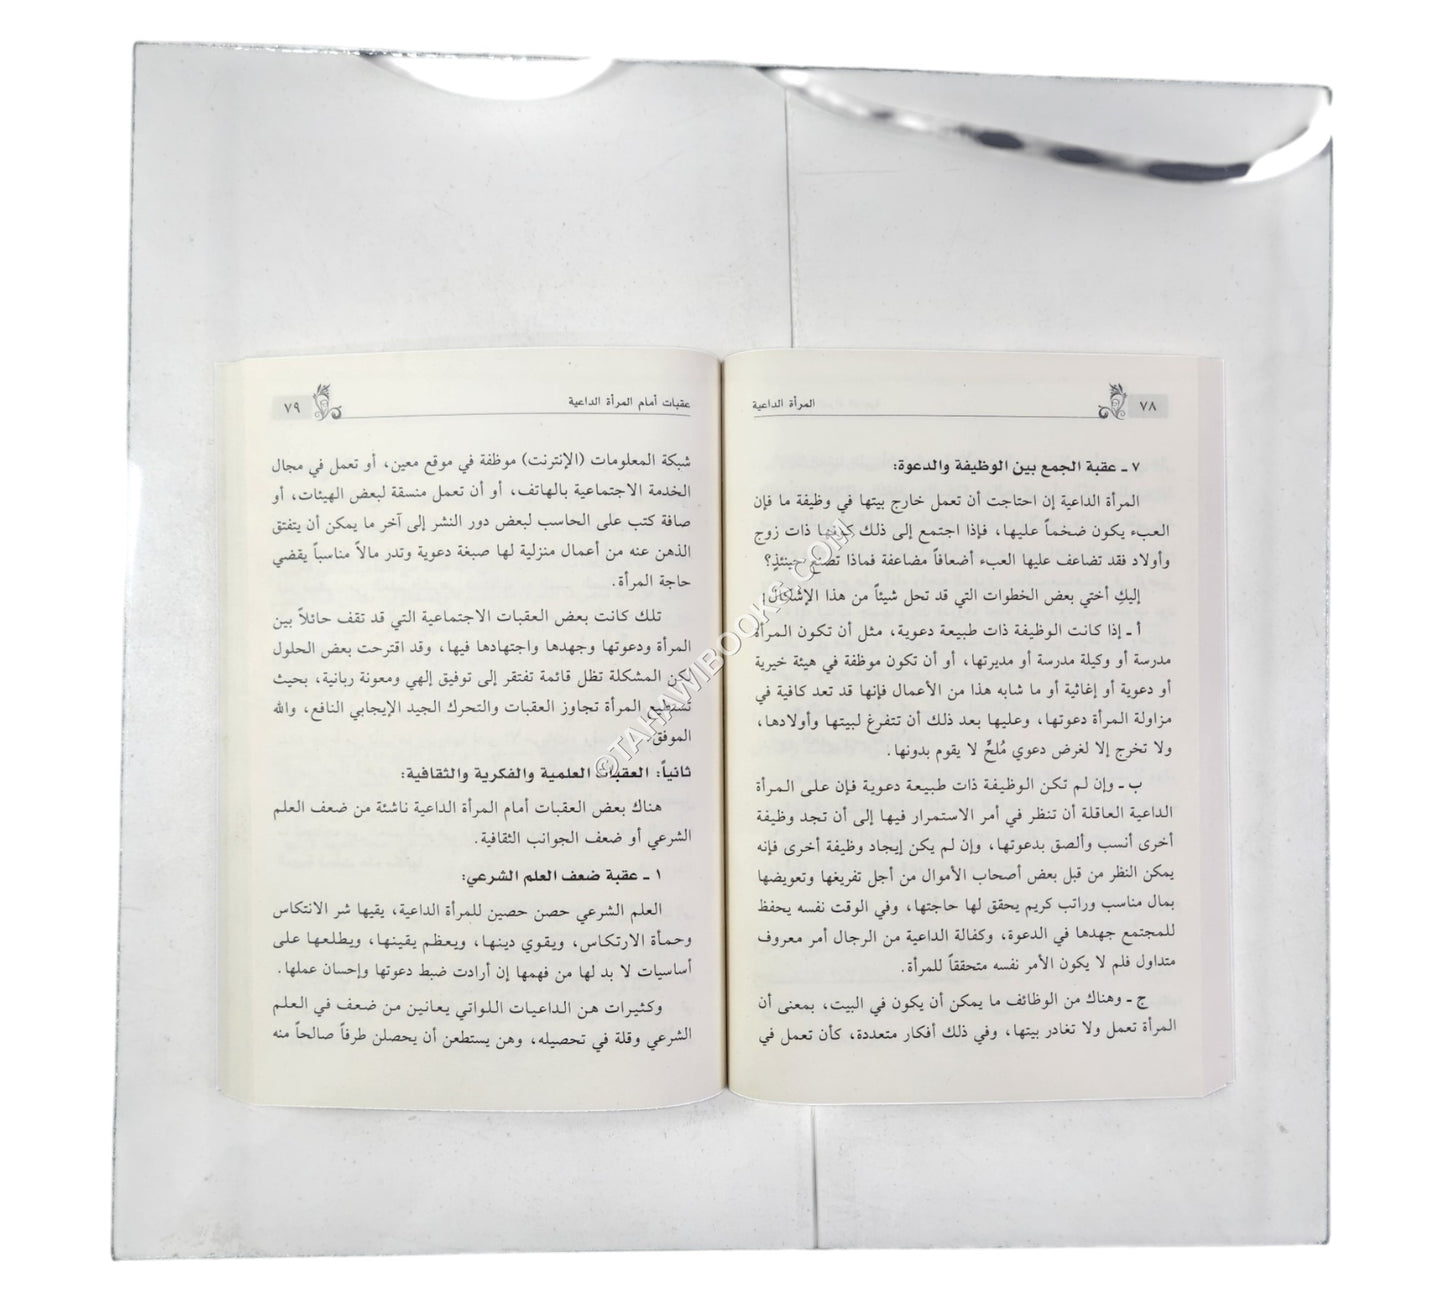 ٧٨
المرأة الداعية
٧ ـ عقبة الجمع بين الوظيفة والدعوة:
المرأة الداعية إن احتاجت أن تعمل خارج بيتها في وظيفة ما فإن
العبء يكون ضخماً عليها، فإذا اجتمع إلى ذلك كونها ذات زوج
وأولاد فقد تضاعف عليها العبء أضعافاً مضاعفة فماذا تصنع حينئذٍ؟
إليكِ أختي بعض الخطوات التي قد تحل شيئاً من هذا الإشكال:
أ ـ إذا كانت الوظيفة ذات طبيعة دعوية، مثل أن تكون المرأة
مدرسة أو وكيلة مدرسة أو مديرتها، أو أن تكون موظفة في هيئة خيرية
أو دعوية أو إغاثية أو ما شابه هذا من الأعمال فإنها قد تعد كافية في
مزاولة المرأة دعوتها، وعليها بعد ذلك أن تتفرغ لبيتها وأولادها،
ولا تخرج إلا لغرض دعوي مُلحٍّ لا يقوم بدونها.
ب ـ وإن لم تكن الوظيفة ذات طبيعة دعوية فإن على المرأة
الداعية العاقلة أن تنظر في أمر الاستمرار فيها إلى أن تجد وظيفة
أخرى أنسب وألصق بدعوتها، وإن لم يكن إيجاد وظيفة أخرى فإنه
يمكن النظر من قبل بعض أصحاب الأموال من أجل تفريغها وتعويضها
بمال مناسب وراتب كريم يحقق لها حاجتها، وفي الوقت نفسه يحفظ
للمجتمع جهدها في الدعوة، وكفالة الداعية من الرجال أمر معروف
متداول فلم لا يكون الأمر نفسه متحققاً للمرأة.
ج ـ وهناك من الوظائف ما يمكن أن يكون في البيت، بمعنى أن
المرأة تعمل ولا تغادر بيتها، وفي ذلك أفكار متعددة، كأن تعمل في
عقبات أمام المرأة الداعية
٧٩
شبكة المعلومات (الإنترنت) موظفة في موقع معين، أو تعمل في مجال
الخدمة الاجتماعية بالهاتف، أو أن تعمل منسقة لبعض الهيئات، أو
صافة كتب على الحاسب لبعض دور النشر إلى آخر ما يمكن أن يتفتق
الذهن عنه من أعمال منزلية لها صبغة دعوية وتدر مالاً مناسباً يقضي
حاجة المرأة.
تلك كانت بعض العقبات الاجتماعية التي قد تقف حائلاً بين
المرأة ودعوتها وجهدها واجتهادها فيها، وقد اقترحت بعض الحلول
لكن المشكلة تظل قائمة تفتقر إلى توفيق إلهي ومعونة ربانية، بحيث
تستطيع المرأة تجاوز العقبات والتحرك الجيد الإيجابي النافع، والله
الموفق.
ثانياً: العقبات العلمية والفكرية والثقافية:
هناك بعض العقبات أمام المرأة الداعية ناشئة من ضعف العلم
الشرعي أو ضعف الجوانب الثقافية.
١ ـ عقبة ضعف العلم الشرعي:
العلم الشرعي حصن حصين للمرأة الداعية، يقيها شر الانتكاس
وحمأة الارتكاس، ويقوي دينها، ويعظم يقينها، ويطلعها على
أساسيات لا بد لها من فهمها إن أرادت ضبط دعوتها وإحسان عملها.
وكثيرات هن الداعيات اللواتي يعانين من ضعف في العلم
الشرعي وقلة في تحصيله، وهن يستطعن أن يحصلن طرفاً صالحاً منه
©TAHAWIBOOKS.COM